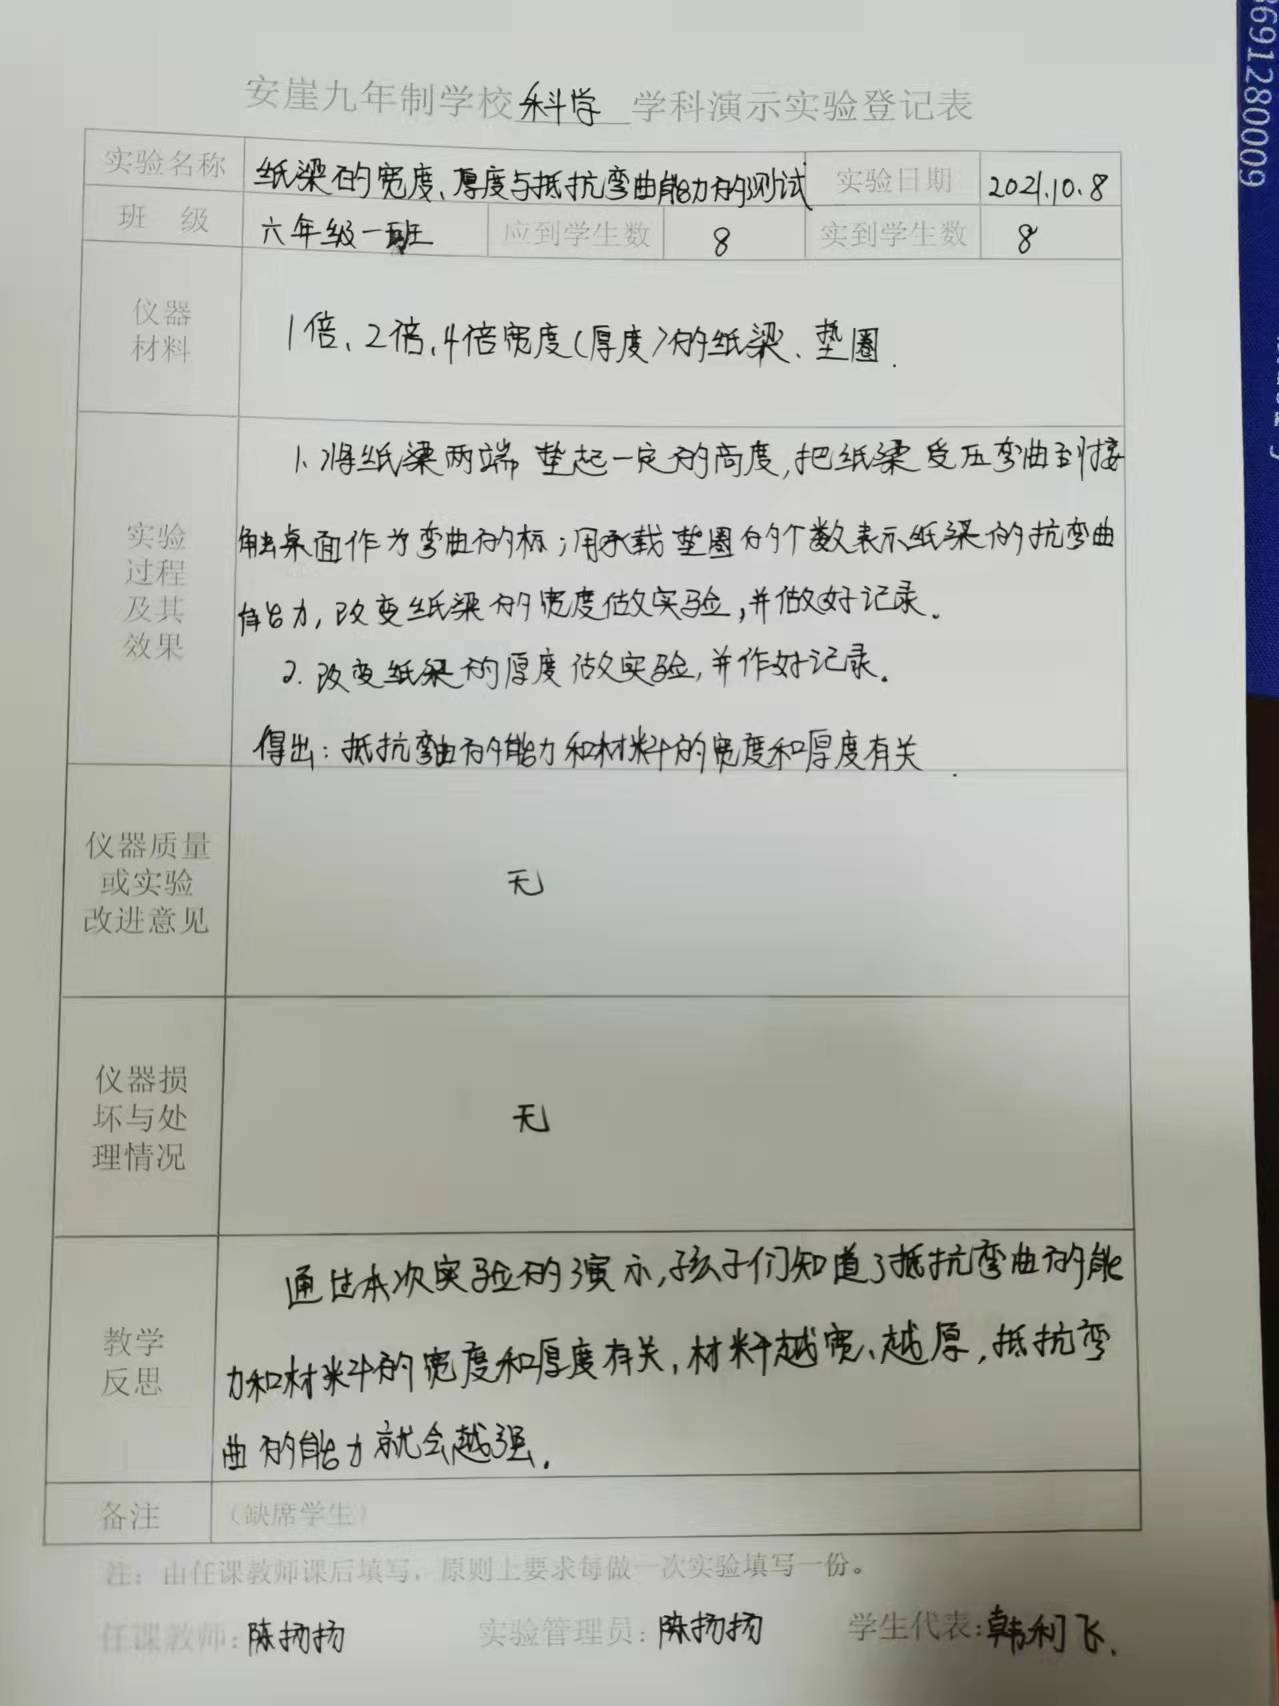 安崖九年制学校科学 学科演示实验登记表
实验名称 纸梁的宽度、厚度与抵抗弯曲能力的测试 实验日期 2021.10.8
班 级 六年级一班 应到学生数 8 实到学生数 8
仪器
材料
1倍、2倍、4倍宽度(厚度)的纸梁、垫圈.
实验
过程
及其
效果
1、将纸梁两端 垫起一定的高度,把纸梁受压弯曲到接
触桌面作为弯曲的标;用承载垫圈的个数表示纸梁的抗弯曲
能力,改变纸梁的宽度做实验,并做好记录。
2.改变纸梁的厚度做实验,并作好记录。
得出:抵抗弯曲的能力和材料的宽度和厚度有关.
仪器质量
或实验
改进意见
无
仪器损
坏与处
理情况
无
教学
反思
通过本次实验的演示,孩子们知道了抵抗弯曲的能
力和材料的宽度和厚度有关,材料越宽、越厚,抵抗弯
曲的能力就会越强.
备注 (缺席学生)
注:由任课教师课后填写,原则上要求每做一次实验填写一份。
任课教师:陈扬扬 实验管理员:陈扬扬 学生代表:韩利飞.
8691280009